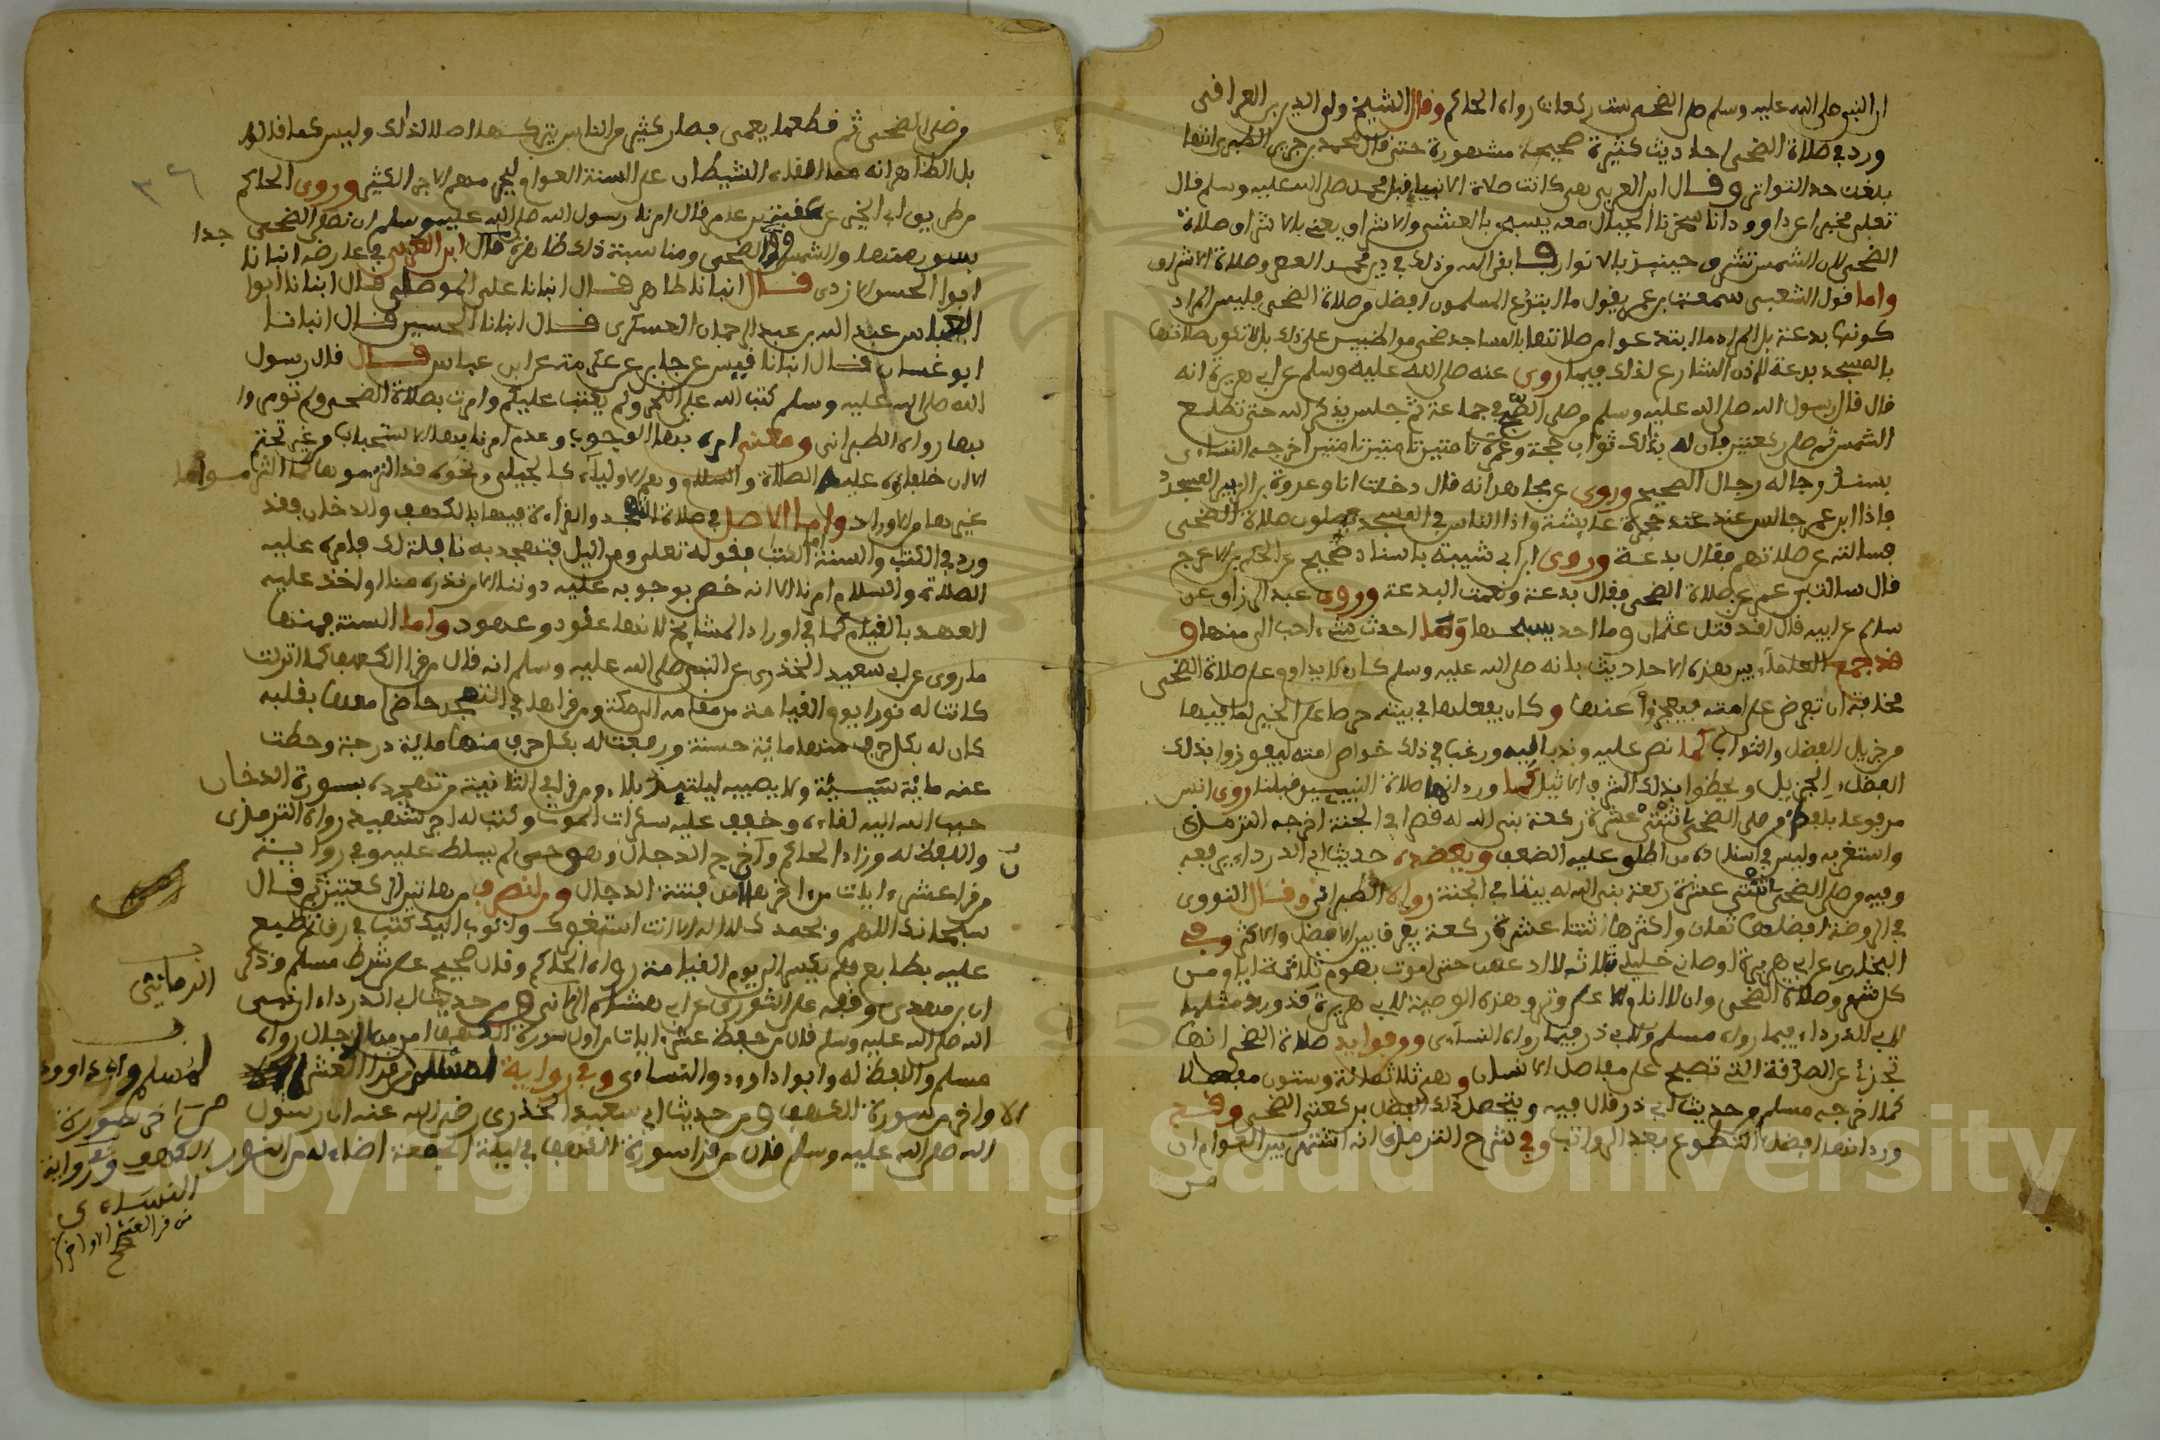 ان النبي صلى الله عليه وسلم صلى الضحى ست ركعات رواه الحاكم وقال الشيخ ولي الدين بن العراقي
ورد في صلاة الضحى احاديث كثيرة صحيحة مشهورة حتى قال محمد بن جرير الطبري انها
بلغت حد التواتر وقال ابن العربي هي كانت صلاة الانبياء قبل محمد صلى الله عليه وسلم قال
تعلى مخبرا عن داوود انا سخرنا الجبال معه يسبحن بالعشي والاشراق يعني بالاشراق صلاة
الضحى لان الشمس تشرق حينئذ بالانوار فابقى الله من ذلك في دين محمد العصر وصلاة الاشراق
واما قول الشعبي سمعت بن عمر يقول ما ابتدع المسلمون افضل من صلاة الضحى فليس المراد
كونها بدعة بل المراد ما ابتدعوا من صلاتها بالمساجد ضحى مواظبين على ذلك بل لا تكون صلاتها
بالمسجد بدعة لاذن الشارع لذلك فيما روي عنه صلى الله عليه وسلم عن ابي هريرة انه
قال قال رسول الله صلى الله عليه وسلم من صلى الصبح في جماعة ثم جلس يذكر الله حتى تطلع
الشمس ثم صلى ركعتين فان له بذالك ثواب حجة وعمرة تامتين تامتين تامتين اخرجه النساءي
بسند رجاله رجال الصحيح وروي عن مجاهد انه قال دخلت انا وعروة بن الزبير المسجد
فاذا ابن عمر جالس عند حجرة عايشة واذا الناس في المسجد يصلون صلاة الضحى
فسالته عن صلاتهم فقال بدعة وروى ابن ابي شيبة باسناد صحيح عن الحكم بن الاعرج
قال سالت بن عمر عن صلاة الضحى فقال بدعة ونعمت البدعة وروى عبد الرزاق عن
سالم عن ابيه قال لقد قتل عثمان وما احد يسبحها وما احدث شيء احب الي منها و
قد جمع العلماء بين هذه الاحاديث بانه صلى الله عليه وسلم كان لا يداوم على صلاة الضحى
مخافة ان تفرض على امته فيعجزوا عنها وكان يفعلها في بيته حرصا على الخير لما فيها
من جزيل الفضل والثواب كما نص عليه وندب اليه ورغب في ذلك خواص امته ليفوزوا بذلك
الفضل الجزيل ويحظوا بذلك الشرف الاثيل كما ورد انها صلاة النبيين قبلنا روى انس
مرفوعا بلفظ من صلى الضحى ثنتي عشرة ركعة بنى الله له قصرا في الجنة اخرجه الترمذي
واستغربه وليس في اسناده من اطلق عليه الضعف ويعضده حديث ابي الدرداء يرفعه
وفيه ومن صلى الضحى ثنتي عشرة ركعة بنى الله له بيتا في الجنة رواه الطبراني وقال النووي
في الروضة افضلها ثمان واكثرها اثنتا عشرة ركعة يفرق بين الافضل والاكثر وفي
البخاري عن ابي هريرة اوصاني خليلي بثلاثة لا ادعهن حتى اموت بصوم ثلاثة ايام من
كل شهر وصلاة الضحى وان لا انام الا على وتر وهذه الوصية لابي هريرة قد ورد مثلها
لابي الدرداء فيما رواه مسلم ولابي ذر فيما رواه النساءي ومن فوايد صلاة الضحى انها
تجزئ عن الصدقة التي تصبح على مفاصل الانسان وهي ثلاثمائة وستون مفصلا
كما اخرجه مسلم من حديث ابي ذر قال فيه ويتحصل ذلك الفضل بركعتي الضحى وقد
ورد انها افضل التطوع بعد الرواتب وفي شرح الترمذي انه اشتهر بين العوام ان
من
من صلى الضحى ثم قطعها يعمى فصار كثير من الناس يتركها اصلا لذلك وليس كما قالوا
بل الظاهر انه مما القاه الشيطان على السنة العوام ليحرمهم الاجر الكثير وروى الحاكم
من طريق ابي الخير عن عقبة بن عامر قال امرنا رسول الله صلى الله عليه وسلم ان نصلي الضحى
بسور منها والشمس والضحى ومناسبة ذلك ظاهرة قال ابن العربي في عارضه انبانا
جدا
ابوا الحسن الازدي قال انبانا طاهر قال انبانا علي الموصلي قال انبانا ابوا
العباس عبد الله بن عبد الرحمان العسكري قال انبانا الحسين قال انبانا
ابو غسان قال انبانا قيس عن جابر عن عكرمة عن ابن عباس قال قال رسول
الله صلى الله عليه وسلم كتب الله علي النحر ولم يكتب عليكم وامرت بصلاة الضحى ولم تومروا
بها رواه الطبراني ومعنى امره بها الوجوب وعدم امرنا بها الاستحباب من غير تحتم
غيرها من الاوراد واما الاصل في صلاة التهجد والقراءة فيها بالكهف والدخان فقد
ورد في الكتب والسنة اما الكتب فقوله تعلى ومن اليل فتهجد به نافلة لك فامره عليه
الصلاة والسلام امر لنا الا انه خص بوجوبه عليه دوننا الا من نذره منا او اخذ عليه
العهد بالقيام كما في اوراد المشايخ لانها عقود وعهود واما السنة فمنها
ما روي عن ابي سعيد الخذري عن النبي صلى الله عليه وسلم انه قال من قرا الكهف كما انزلت
كانت له نورا يوم القيامة من مقامه الى مكة ومن قراها في التهجد حاضرا معها بقلبه
كان له بكل حرف منها مائة حسنة ورفعت له بكل حرف منها مائة درجة وحطت
عنه مائة سيئة ولا يصيبه ليلتيذ بلاء ومن قرا في الثانية من تهجده بسورة الدخان
حبب الله اليه لقاءه وخفف عليه سكرات الموت وكتب له اجر شهيد رواه الترمذي
واللفظ له وزاد الحاكم واخرج الدجال وهو حي لم يسلط عليه وفي رواية
من قرا عشر ءايات من اخرها امن فتنة الدجال ومن انصرف من هاتين الركعتين ثم قال
سبحانك اللهم وبحمدك لا اله الا انت استغفرك واتوب اليك كتب في رق فطبع
عليه بطابع فلم يكسر الى يوم القيامة رواه الحاكم وقال صحيح على شرط مسلم وذكر
ان بن مهدي وقفه على الثوري عن ابي هشام الرماني ومن حديث ابي الدرداء ان نبي
الله صلى الله عليه وسلم قال من حفظ عشر ءايات من اول سورة الكهف امن من الدجال رواه
مسلم واللفظ له وابوا داوود والنساءي وفي رواية لمسلم من قرا العشر
الاواخر من سورة الكهف ومن حديث ابي سعيد الخذري رضي الله عنه ان رسول
الله صلى الله عليه وسلم قال من قرا سورة الكهف في ليلة الجمعة اضاء له من النور
الدمائتي
لمسلم وابي داوود
من اخر سورة
الكهف وفي رواية
النساءي
من قرا العشر الاواخر
صح